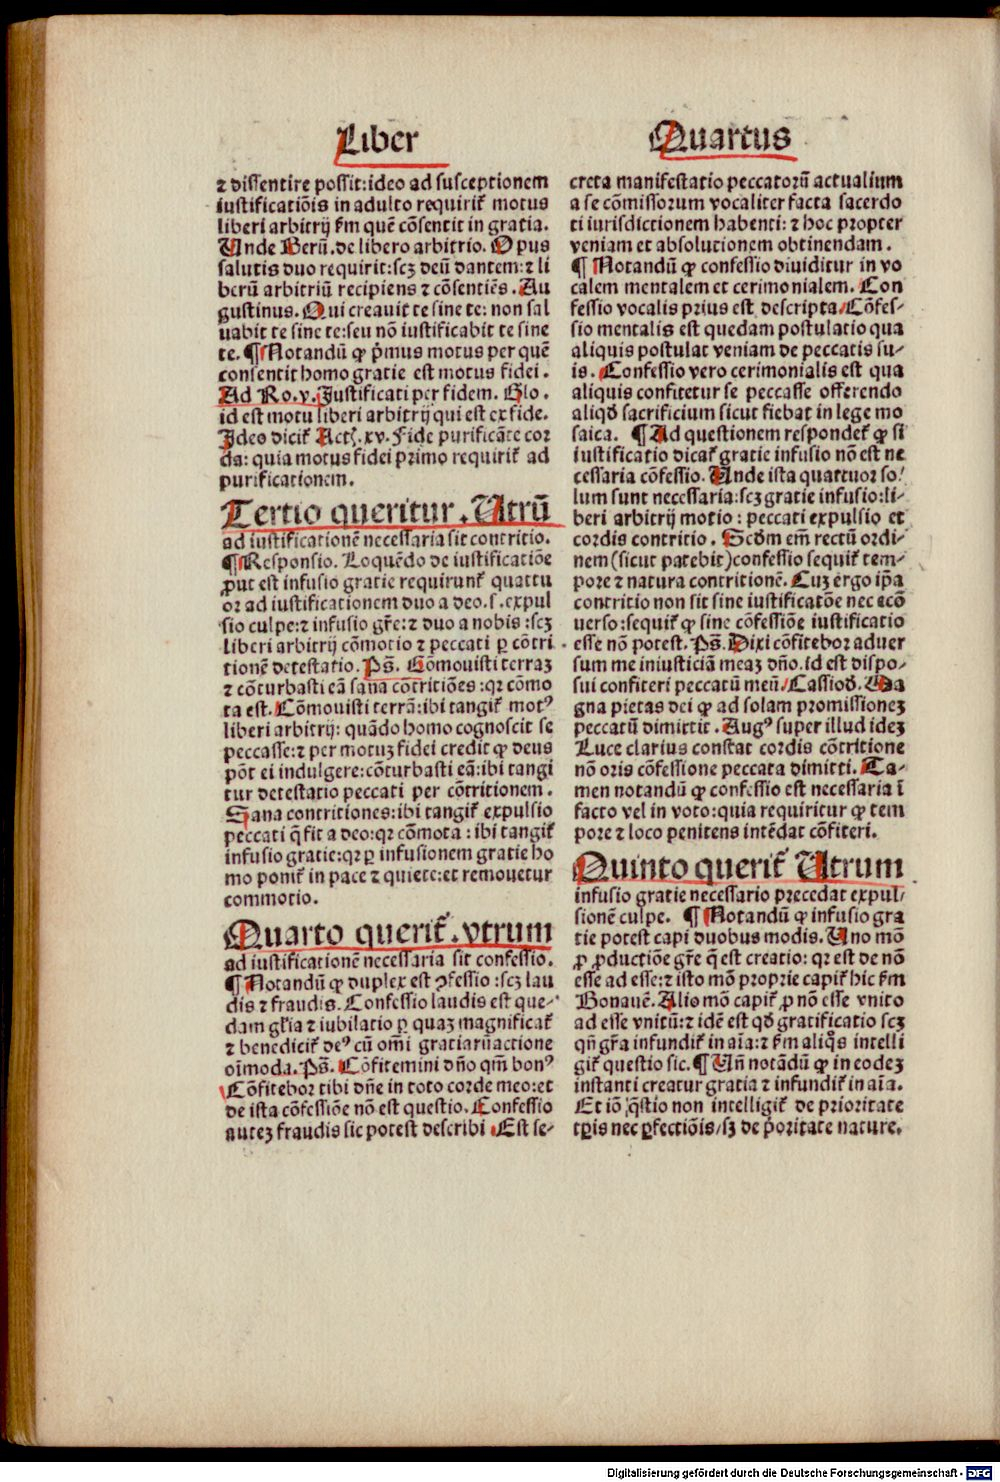 Liber
⁊ dissentire possit:ideo ad susceptionem
iustificatiōis in adulto requirit᷑ motus
liberi arbitrij ẜm quē cōsentit in gratia.
Unde Berū.de libero arbitrio. Opus
salutis duo requirit:scꝫ deū dantem:⁊ li
berū arbitriū recipiens ⁊ cōsentiēs. Au
gustinus. Qui creauit te sine te: non sal
uabit te sine te:seu nō iustificabit te sine
te. ¶ Notandū ꝙ p̄mus motus per quē
consentit homo gratie est motus fidei.
Ad Ro.v. Justificati per fidem. Glo.
id est motu liberi arbitrij qui est ex fide.
Ideo dicit᷑ Act. xv. Fide purificāte cor
da: quia motus fidei primo requirit᷑ ad
purificationem.
Tertio queritur. Utrū
ad iustificationē necessaria sit contritio.
¶ Responsio. Loquēdo de iustificatiōe
ꝓut est infusio gratie requirunt᷑ quattu
or ad iustificationem duo a deo.s. expul
sio culpe:⁊ infusio gr̄e:⁊ duo a nobis :scꝫ
liberi arbitrij cōmotio ⁊ peccati ꝑ cōtri
tionē detestatio. Ps̄. Cōmouisti terraꝫ
⁊ cōturbasti eā sana cōtritiōes :qꝛ cōmo
ta est. Cōmouisti terrā:ibi tangit᷑ motꝰ
liberi arbitrij: quādo homo cognoscit se
peccasse:⁊ per motuꝫ fidei credit ꝙ deus
pōt ei indulgere:cōturbasti eā:ibi tangi
tur detestatio peccati per cōtritionem.
Sana contritiones:ibi tangit᷑ expulsio
peccati q̄ fit a deo:qꝛ cōmota : ibi tangit᷑
infusio gratie:qꝛ ꝑ infusionem gratie ho
mo ponit᷑ in pace ⁊ quiete:et remouetur
commotio.
Quarto querit᷑.vtrum
ad iustificationē necessaria sit confessio.
¶ Notandū ꝙ duplex est ꝯfessio :scꝫ lau
dis ⁊ fraudis. Confessio laudis est que-
dam gr̄ia ⁊ iubilatio ꝑ quaꝫ magnificat᷑
⁊ benedicit᷑ deꝰ cū om̄i gratiarū actione
oīmoda. Ps̄. Cōfitemini dn̄o qm̄ bonꝰ
Cōfitebor tibi dn̄e in toto corde meo:et
de ista cōfessiōe nō est questio. Confessio
auteꝫ fraudis sic potest describi .Est se-
Quartus
creta manifestatio peccatorū actualium
a se cōmissorum vocaliter facta sacerdo
ti iurisdictionem habenti: ⁊ hoc propter
veniam et absolutionem obtinendam.
¶ Notandū ꝙ confessio diuiditur in vo
calem mentalem et cerimonialem. Con
fessio vocalis prius est descripta. Cōfes-
sio mentalis est quedam postulatio qua
aliquis postulat veniam de peccatis su-
is. Confessio vero cerimonialis est qua
aliquis confitetur se peccasse offerendo
aliqd̄ sacrificium sicut fiebat in lege mo
saica. ¶ Ad questionem respondet᷑ ꝙ si
iustificatio dicat᷑ gratie infusio nō est ne
cessaria cōfessio. Unde ista quattuor so-
lum sunt necessaria:scꝫ gratie infusio:li-
beri arbitrij motio : peccati expulsio et
cordis contritio. Scdm em̄ rectū ordi-
nem (sicut patebit)confessio sequit᷑ tem-
pore ⁊ natura contritionē. Cuꝫ ergo ip̄a
contritio non sit sine iustificatōe nec ecō
uerso:sequit᷑ ꝙ sine cōfessiōe iustificatio
esse nō potest. Ps̄. Dixi cōfitebor aduer
sum me iniusticiā meaꝫ dn̄o. id est dispo-
sui confiteri peccatū meū. Cassiod. Ma
gna pietas dei ꝙ ad solam promissioneꝫ
peccatū dimittit. Augꝰ super illud ideꝫ
Luce clarius constat cordis cōtritione
nō oris cōfessione peccata dimitti. Ta-
men notandū ꝙ confessio est necessaria ī
facto vel in voto:quia requiritur ꝙ tem
pore ⁊ loco penitens intēdat cōfiteri.
Quinto querit᷑ Utrum
infusio gratie necessario precedat expul-
sionē culpe. ¶ Notandū ꝙ infusio gra
tie potest capi duobus modis. Uno mō
ꝓ ꝓductiōe gr̄e q̄ est creatio: qꝛ est de nō
esse ad esse:⁊ isto mō proprie capit᷑ hic ẜm
Bonauē. Alio mō capit᷑ ꝓ nō esse vnito
ad esse vnitū:⁊ idē est qd̄ gratificatio scꝫ
qn̄ gr̄a infundit᷑ in aīa:⁊ ẜm aliq̄s intelli
git᷑ questio sic. ¶ Un̄ notādū ꝙ in codeꝫ
instanti creatur gratia ⁊ infundit᷑ in aīa.
Et iō q̄stio non intelligit᷑ de prioritate
tp̄is nec ꝑfectiōis/sꝫ de p̄oritate nature.
Digitalisierung gefördert durch die Deutsche Forschungsgemeinschaft - DFG